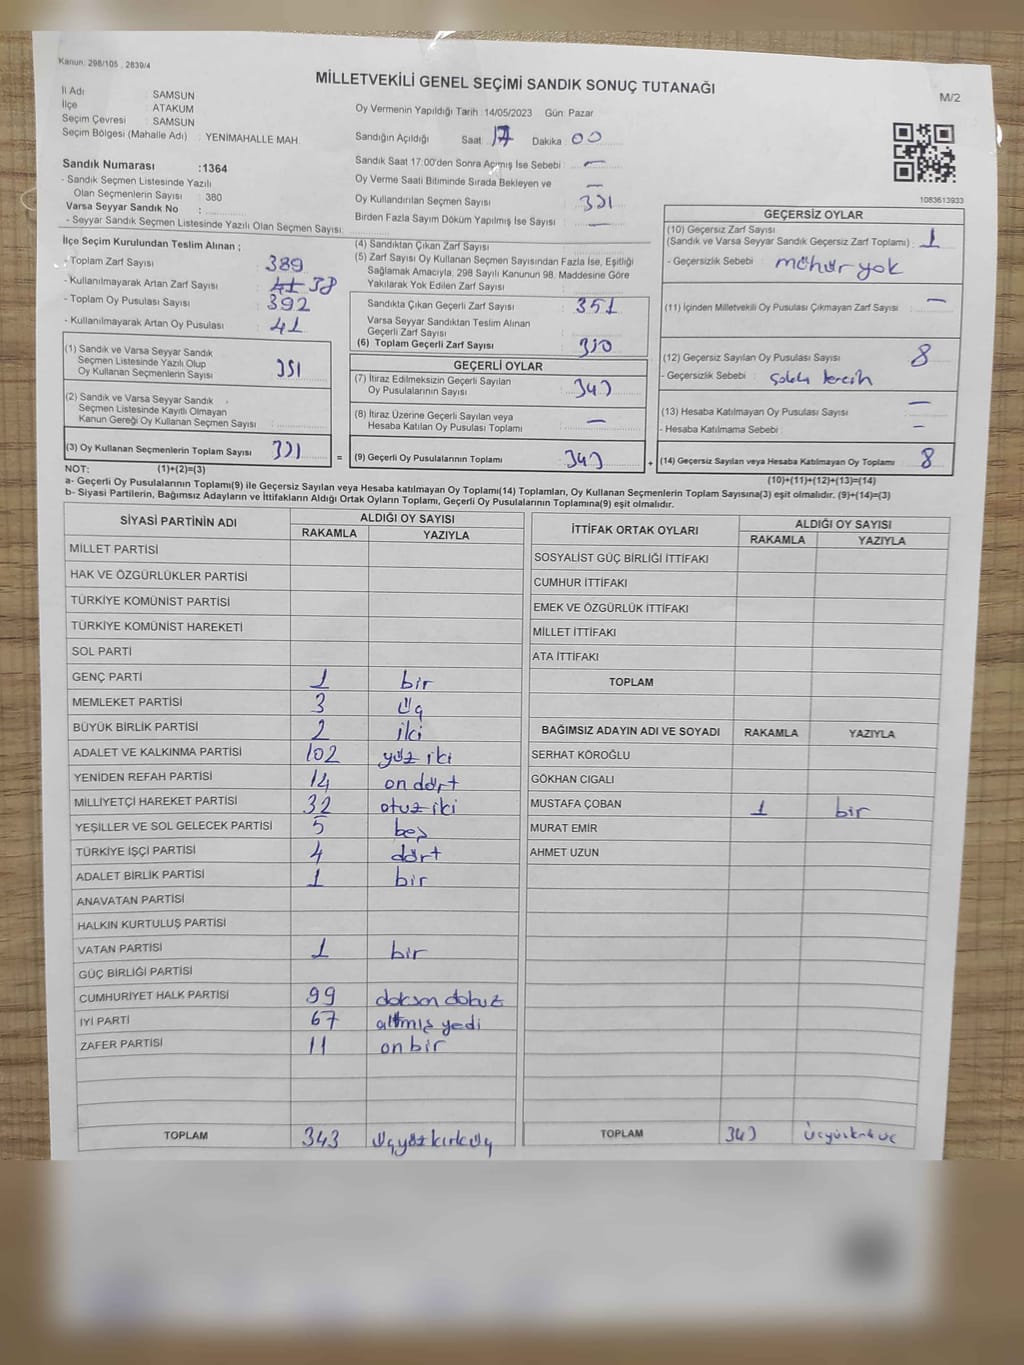 Kanun: 298/105 , 2839/4
MİLLETVEKİLİ GENEL SEÇİMİ SANDIK SONUÇ TUTANAĞI
M/2
İl Adı : SAMSUN
İlçe : ATAKUM
Seçim Çevresi : SAMSUN
Seçim Bölgesi (Mahalle Adı) : YENİMAHALLE MAH.
Sandık Numarası :1364
- Sandık Seçmen Listesinde Yazılı
Olan Seçmenlerin Sayısı : 380
Varsa Seyyar Sandık No :
- Seyyar Sandık Seçmen Listesinde Yazılı Olan Seçmen Sayısı:
Oy Vermenin Yapıldığı Tarih :14/05/2023 Gün: Pazar
Sandığın Açıldığı Saat :17 Dakika :00
Sandık Saat 17:00'den Sonra Açılmış İse Sebebi : —
Oy Verme Saati Bitiminde Sırada Bekleyen ve
Oy Kullandırılan Seçmen Sayısı : 351
Birden Fazla Sayım Döküm Yapılmış İse Sayısı : —
1083613933
İlçe Seçim Kurulundan Teslim Alınan ;
- Toplam Zarf Sayısı : 389
- Kullanılmayarak Artan Zarf Sayısı : 41 38
- Toplam Oy Pusulası Sayısı : 392
- Kullanılmayarak Artan Oy Pusulası : 41
(1) Sandık ve Varsa Seyyar Sandık
Seçmen Listesinde Yazılı Olup
Oy Kullanan Seçmenlerin Sayısı : 351
(2) Sandık ve Varsa Seyyar Sandık
Seçmen Listesinde Kayıtlı Olmayan
Kanun Gereği Oy Kullanan Seçmen Sayısı :
(3) Oy Kullanan Seçmenlerin Toplam Sayısı : 351
(4) Sandıktan Çıkan Zarf Sayısı :
(5) Zarf Sayısı Oy Kullanan Seçmen Sayısından Fazla İse, Eşitliği
Sağlamak Amacıyla, 298 Sayılı Kanunun 98. Maddesine Göre
Yakılarak Yok Edilen Zarf Sayısı :
Sandıkta Çıkan Geçerli Zarf Sayısı : 351
Varsa Seyyar Sandıktan Teslim Alınan
Geçerli Zarf Sayısı :
(6) Toplam Geçerli Zarf Sayısı : 350
GEÇERLİ OYLAR
(7) İtiraz Edilmeksizin Geçerli Sayılan
Oy Pusulalarının Sayısı : 343
(8) İtiraz Üzerine Geçerli Sayılan veya
Hesaba Katılan Oy Pusulası Toplamı : —
= (9) Geçerli Oy Pusulalarının Toplamı : 343 +
GEÇERSİZ OYLAR
(10) Geçersiz Zarf Sayısı
(Sandık ve Varsa Seyyar Sandık Geçersiz Zarf Toplamı) : 1
- Geçersizlik Sebebi : mühür yok
(11) İçinden Milletvekili Oy Pusulası Çıkmayan Zarf Sayısı : —
(12) Geçersiz Sayılan Oy Pusulası Sayısı : 8
- Geçersizlik Sebebi :
(13) Hesaba Katılmayan Oy Pusulası Sayısı : —
- Hesaba Katılmama Sebebi : —
(14) Geçersiz Sayılan veya Hesaba Katılmayan Oy Toplamı : 8
NOT: (1)+(2)=(3)
(10)+(11)+(12)+(13)=(14)
a- Geçerli Oy Pusulalarının Toplamı(9) ile Geçersiz Sayılan veya Hesaba katılmayan Oy Toplamı(14) Toplamları, Oy Kullanan Seçmenlerin Toplam Sayısına(3) eşit olmalıdır. (9)+(14)=(3)
b- Siyasi Partilerin, Bağımsız Adayların ve İttifakların Aldığı Ortak Oyların Toplamı, Geçerli Oy Pusulalarının Toplamına(9) eşit olmalıdır.
SİYASİ PARTİNİN ADI ALDIĞI OY SAYISI
RAKAMLA YAZIYLA
MİLLET PARTİSİ
HAK VE ÖZGÜRLÜKLER PARTİSİ
TÜRKİYE KOMÜNİST PARTİSİ
TÜRKİYE KOMÜNİST HAREKETİ
SOL PARTİ
GENÇ PARTİ 1 bir
MEMLEKET PARTİSİ 3 üç
BÜYÜK BİRLİK PARTİSİ 2 iki
ADALET VE KALKINMA PARTİSİ 102 yüz iki
YENİDEN REFAH PARTİSİ 14 on dört
MİLLİYETÇİ HAREKET PARTİSİ 32 otuz iki
YEŞİLLER VE SOL GELECEK PARTİSİ 5 beş
TÜRKİYE İŞÇİ PARTİSİ 4 dört
ADALET BİRLİK PARTİSİ 1 bir
ANAVATAN PARTİSİ
HALKIN KURTULUŞ PARTİSİ
VATAN PARTİSİ 1 bir
GÜÇ BİRLİĞİ PARTİSİ
CUMHURİYET HALK PARTİSİ 99 doksan dokuz
İYİ PARTİ 67 altmış yedi
ZAFER PARTİSİ 11 on bir
TOPLAM 343 üçyüzkırküç
İTTİFAK ORTAK OYLARI ALDIĞI OY SAYISI
RAKAMLA YAZIYLA
SOSYALİST GÜÇ BİRLİĞİ İTTİFAKI
CUMHUR İTTİFAKI
EMEK VE ÖZGÜRLÜK İTTİFAKI
MİLLET İTTİFAKI
ATA İTTİFAKI
TOPLAM
BAĞIMSIZ ADAYIN ADI VE SOYADI RAKAMLA YAZIYLA
SERHAT KÖROĞLU
GÖKHAN CIGALI
MUSTAFA ÇOBAN 1 bir
MURAT EMİR
AHMET UZUN
TOPLAM 343 üçyüzkırküç